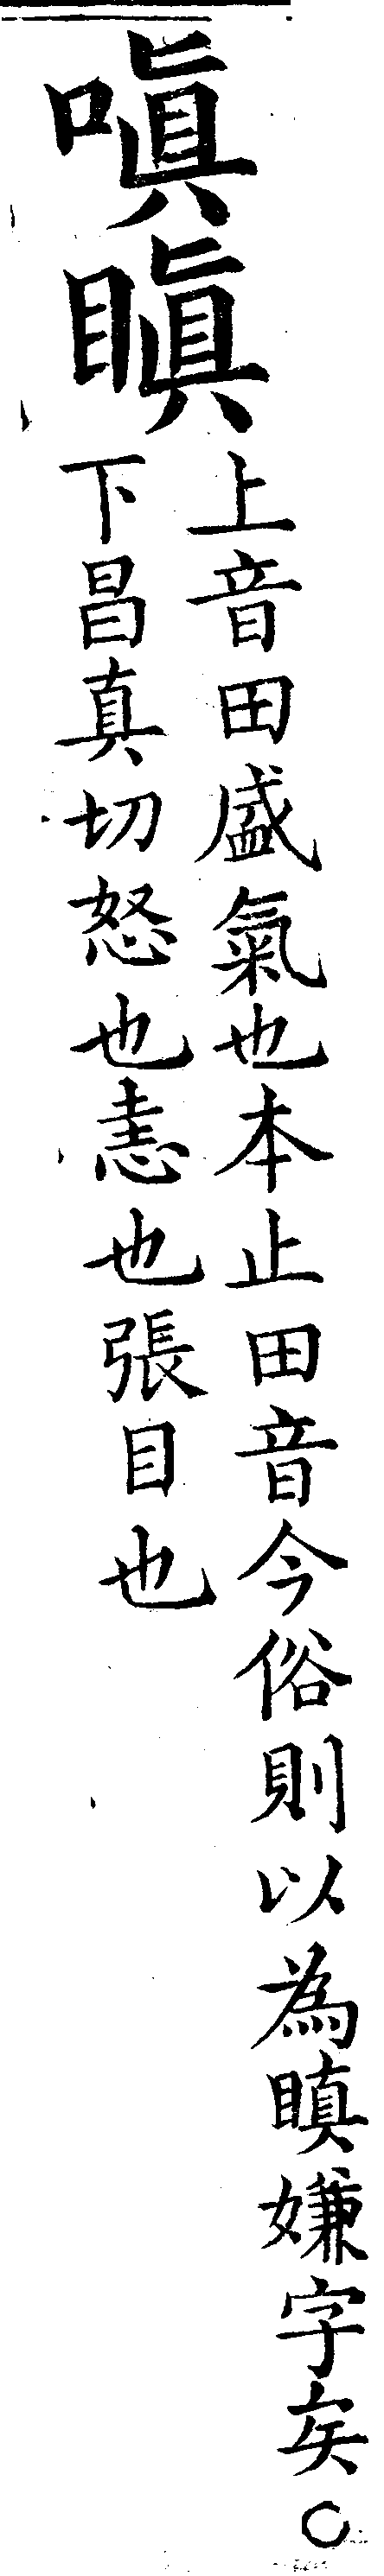 嗔瞋
上音田盛氣也本止田音今俗則以為瞋嫌字矣○
下昌真切怒也恚也張目也